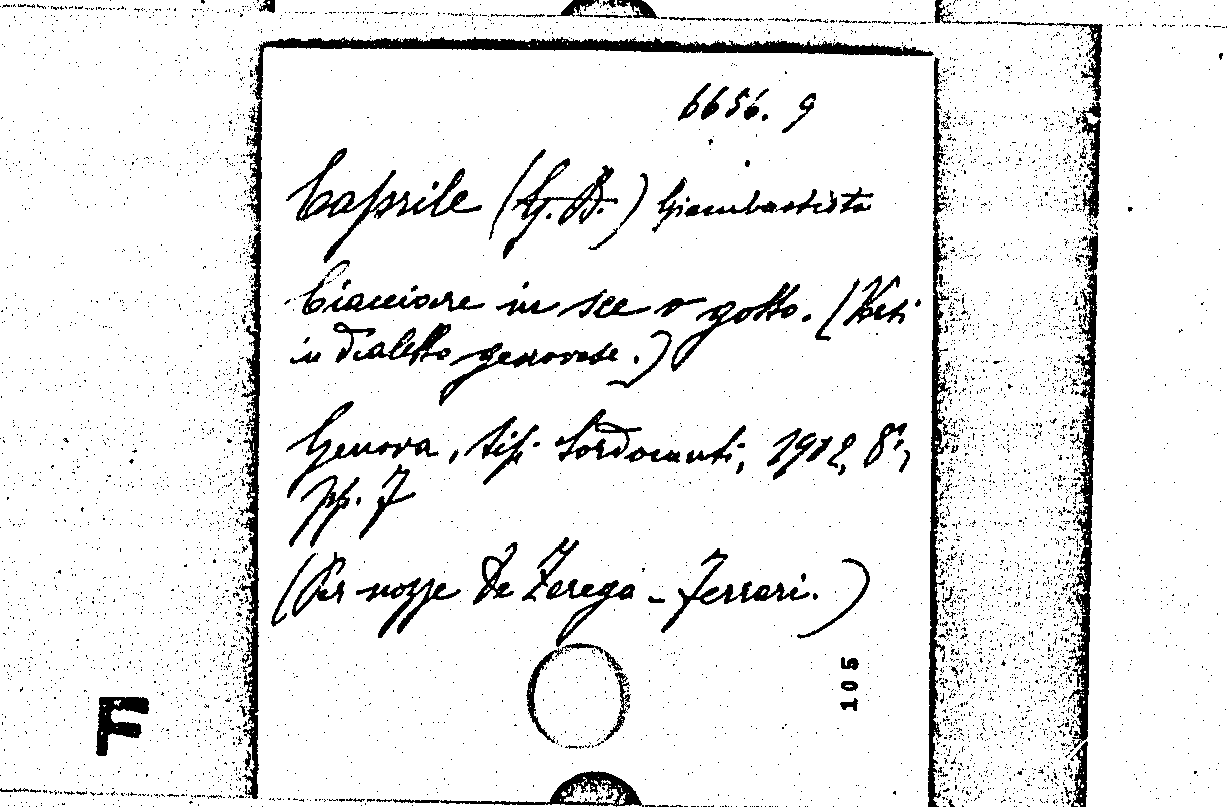 6656. 9
Caprile (G. B.) Giambattista
Ciacciare in sce o gotto. (Versi
in dialetto genovese.)
Genova, tip. Sordomuti, 1912, 8°,
pp. 7
(Per nozze De Zerega - Ferrari.)
105
F